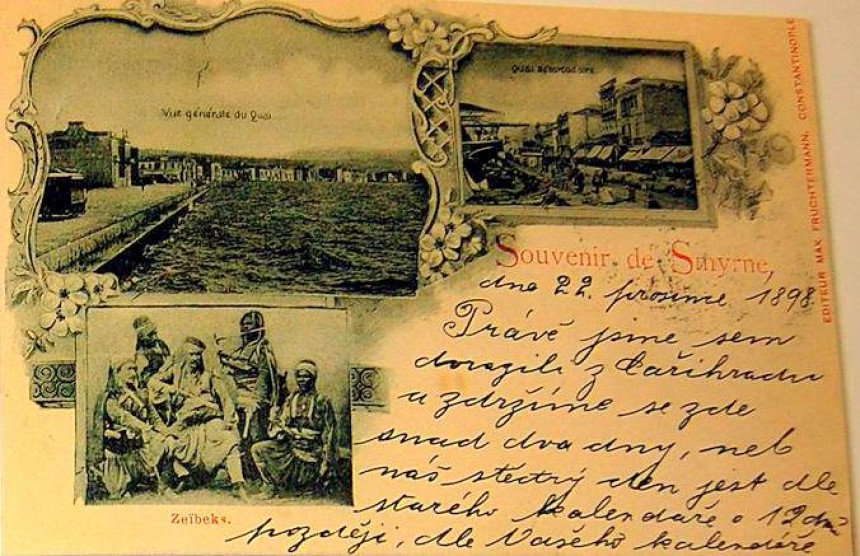 Vue générale du Quai
Quai débarcadère
EDITEUR MAX FRUCHTERMANN, CONSTANTINOPLE
Souvenir de Smyrne,
dne 22. prosince 1898
Právě jsme sem
dorazili z Cařihradu
a zdržíme se zde
snad dva dny, neb
náš štědrý den jest dle
starého kalendáře o 12 dnů
později, dle Vašeho kalendáře
Zeïbeks.